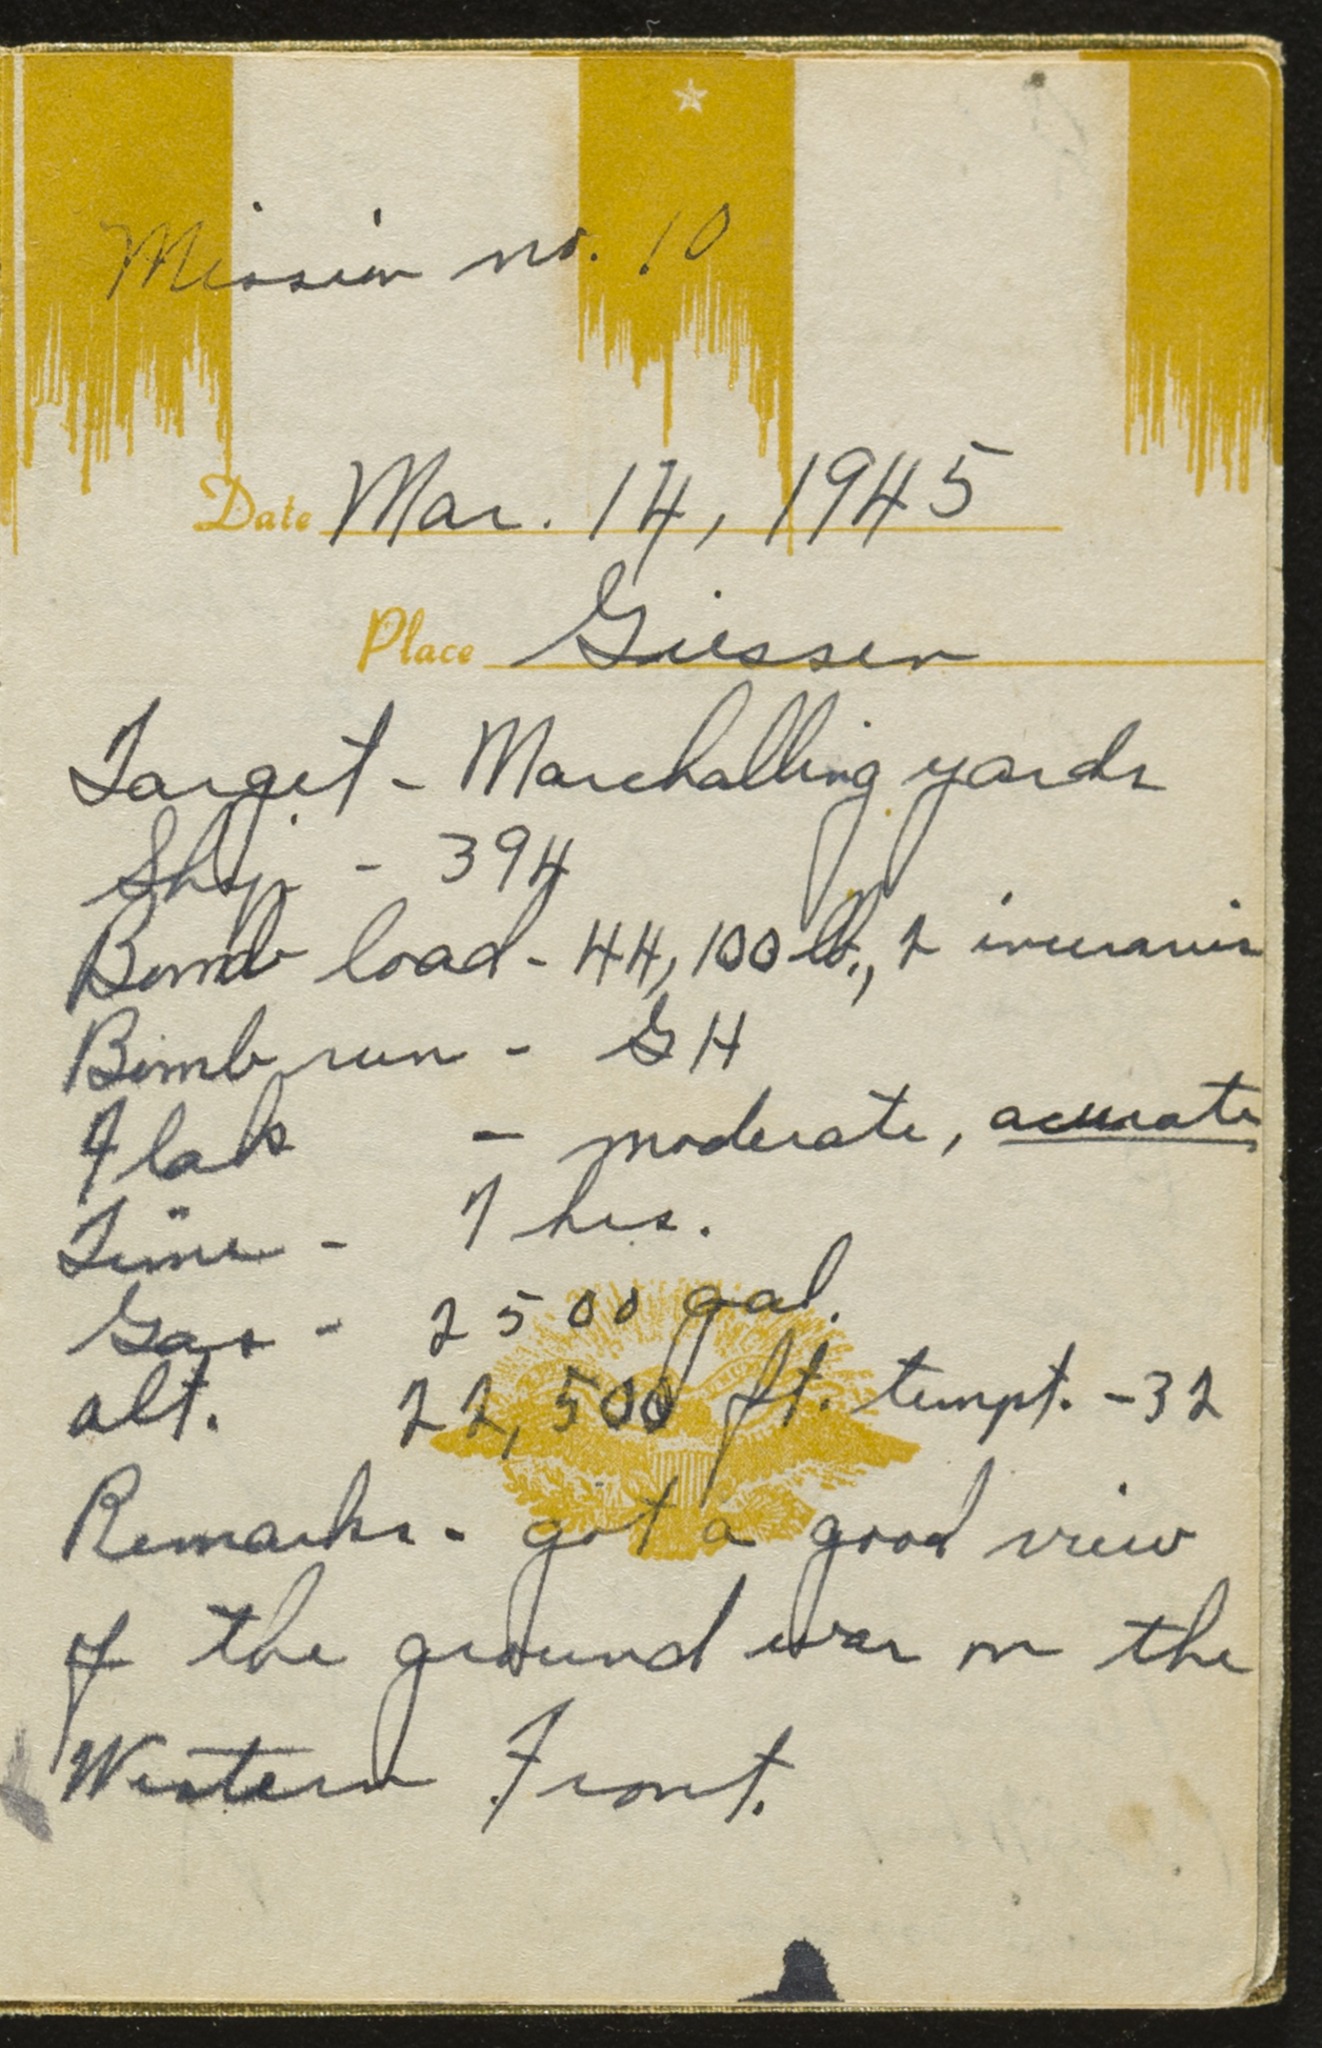 Mission no. 10
Date Mar. 14, 1945
Place Giessen
Target - Marchalling yards
Ship - 394
Bomb load - 44, 100 lb., 2 incenaries
Bomb run - GH
Flak - moderate, accurate
Time - 7 hrs.
Gas - 2500 gal.
alt. 22,500 ft. tempt. -32
Remarks - got a good view
of the ground war on the
Western Front.